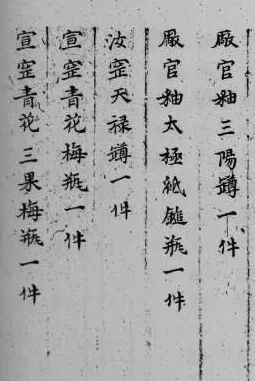 廠官釉三陽罇一件
廠官釉太極紙鎚瓶一件
汝窑天禄罇一件
宣窑青花梅瓶一件
宣窑青花三果梅瓶一件